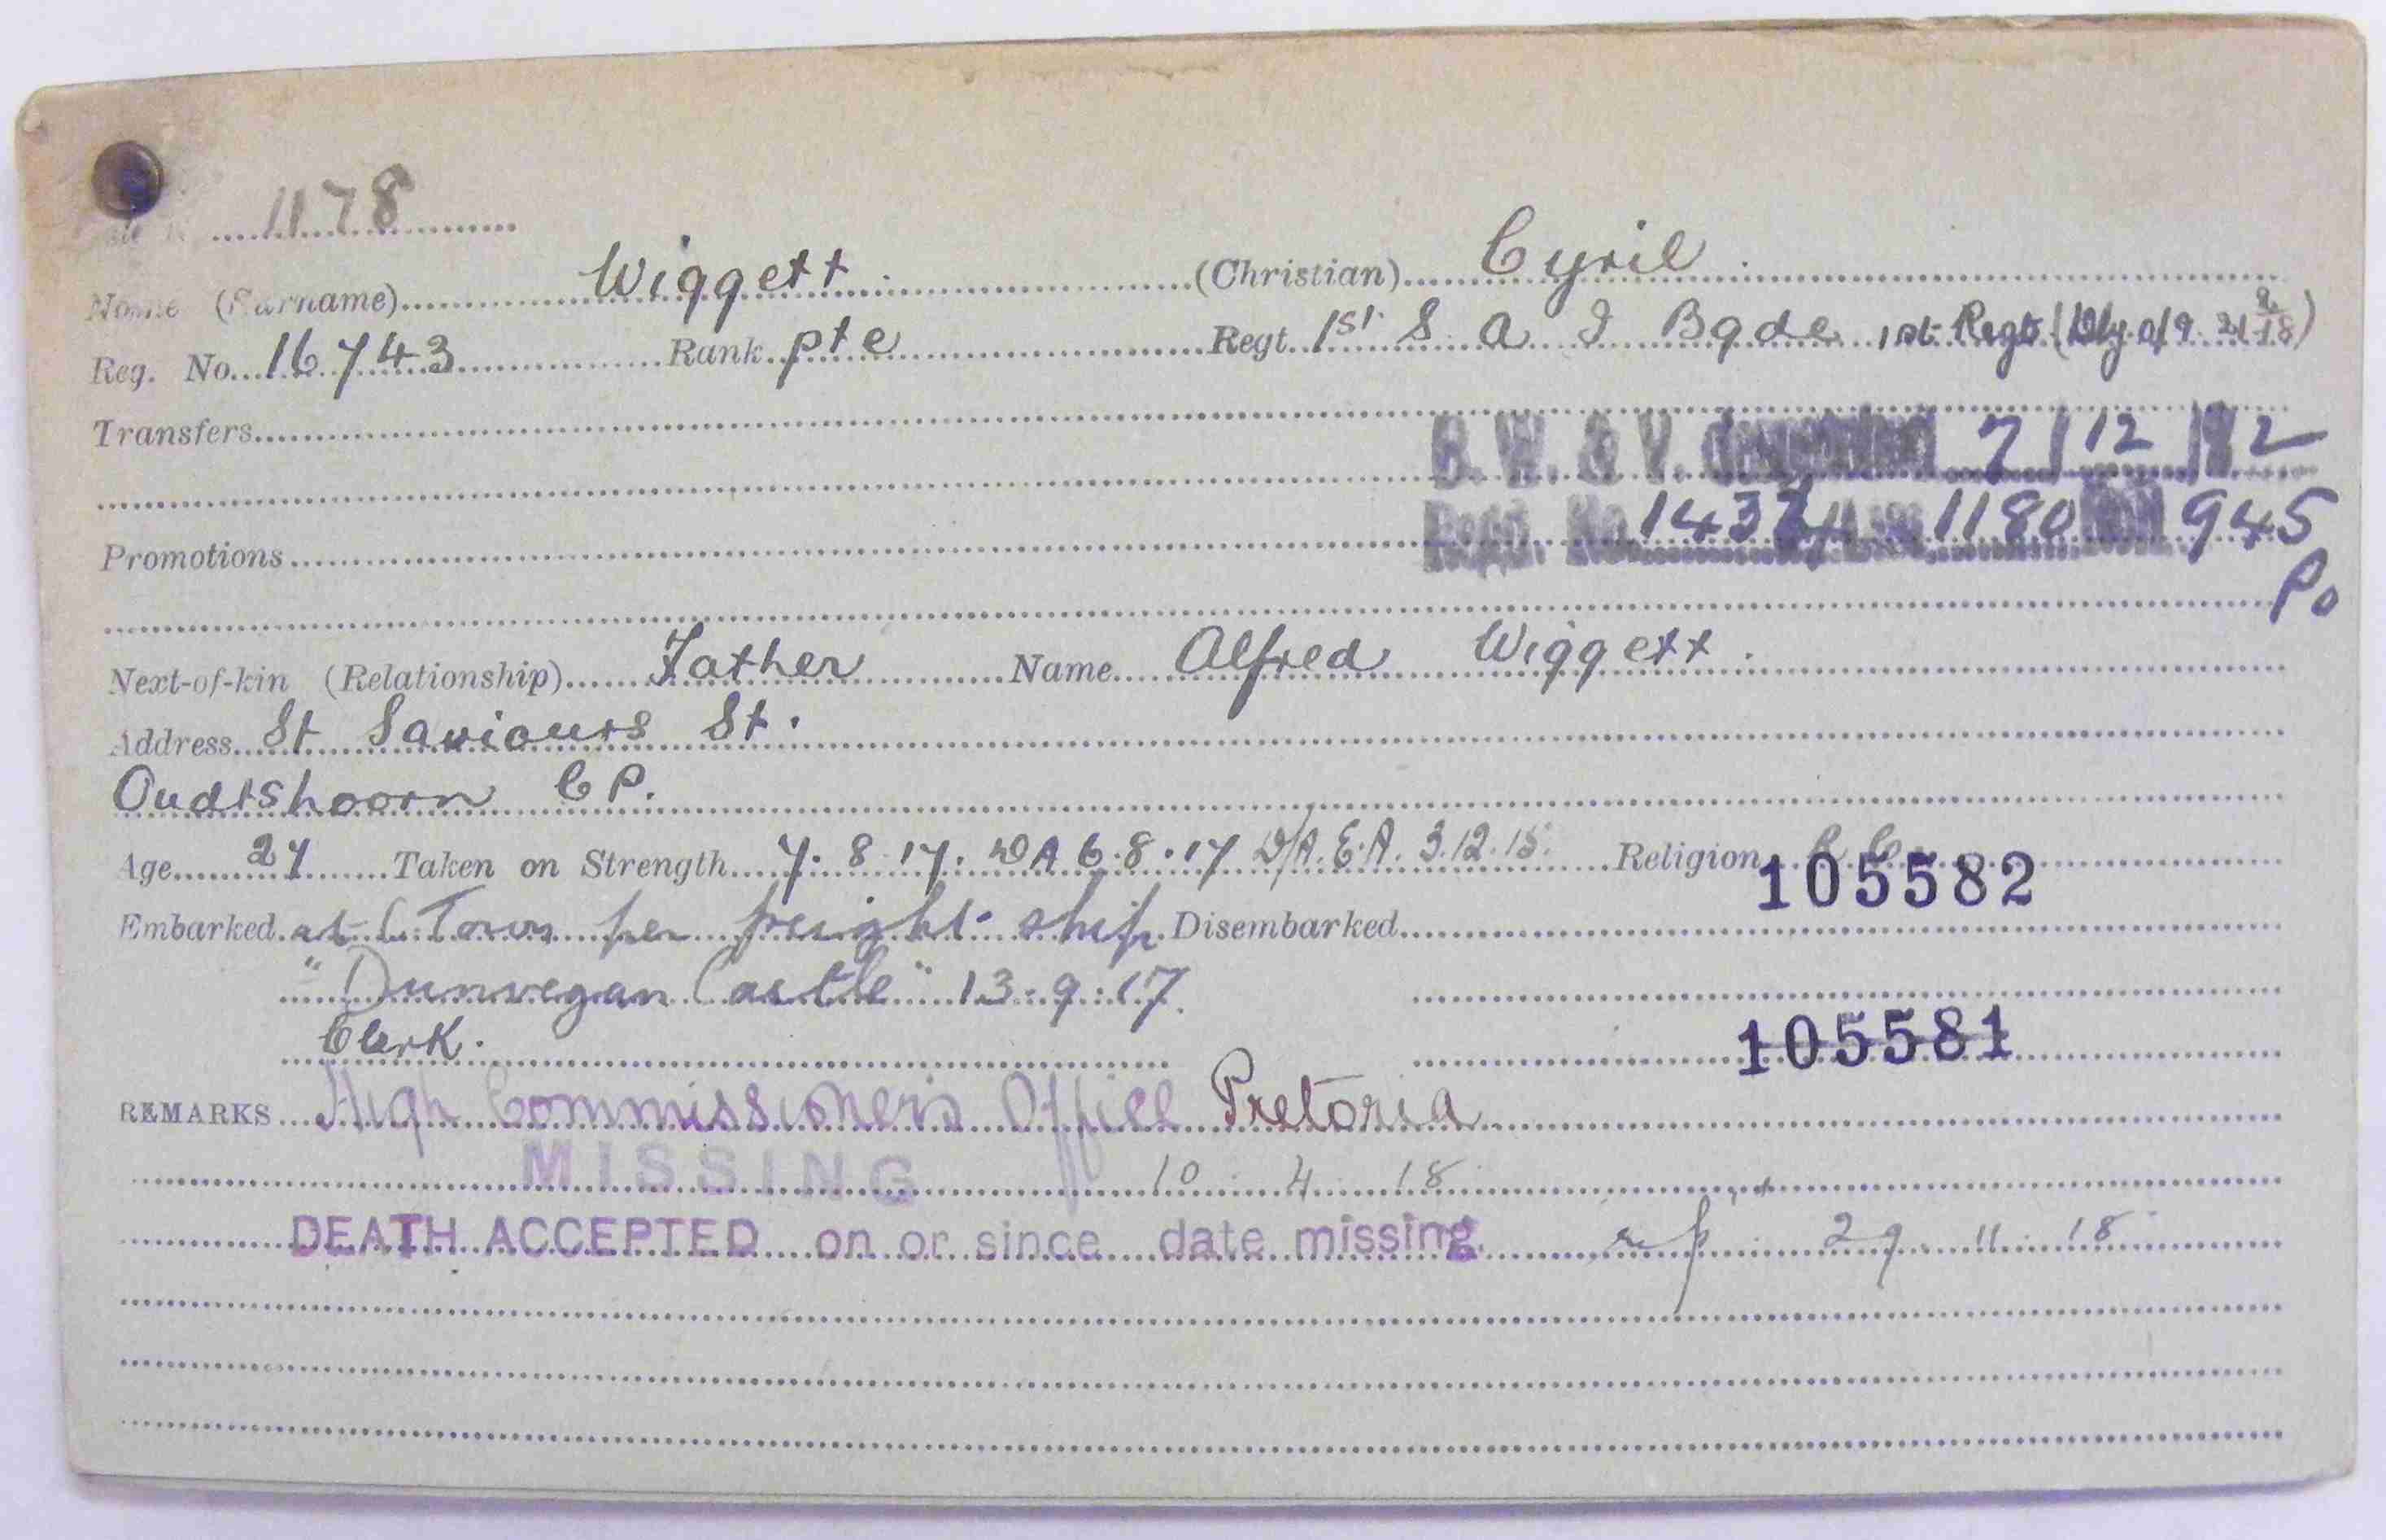 1178
Name (Surname) Wiggett. (Christian) Cyril.
Reg. No. 16743 Rank pte Regt. 1st. S A I Bgde 1st Regt
Transfers
B. W. & V. 7/12
Regd. No. 1180 945
Promotions
Po
Next-of-kin (Relationship) Father Name Alfred Wiggett.
Address St Saviours St.
Oudtshoorn C P.
Age 27 Taken on Strength 7. 8. 17. DA 6. 8. 17 D/A. E.A. 3.12.15. Religion R. C.
105582
Embarked at C. Town per freight ship Disembarked
"Dunvegan Castle" 13.9.17.
Clerk.
105581
REMARKS High Commissioner's Office Pretoria
MISSING 10 4 18
DEATH ACCEPTED on or since date missing. 29 11 18